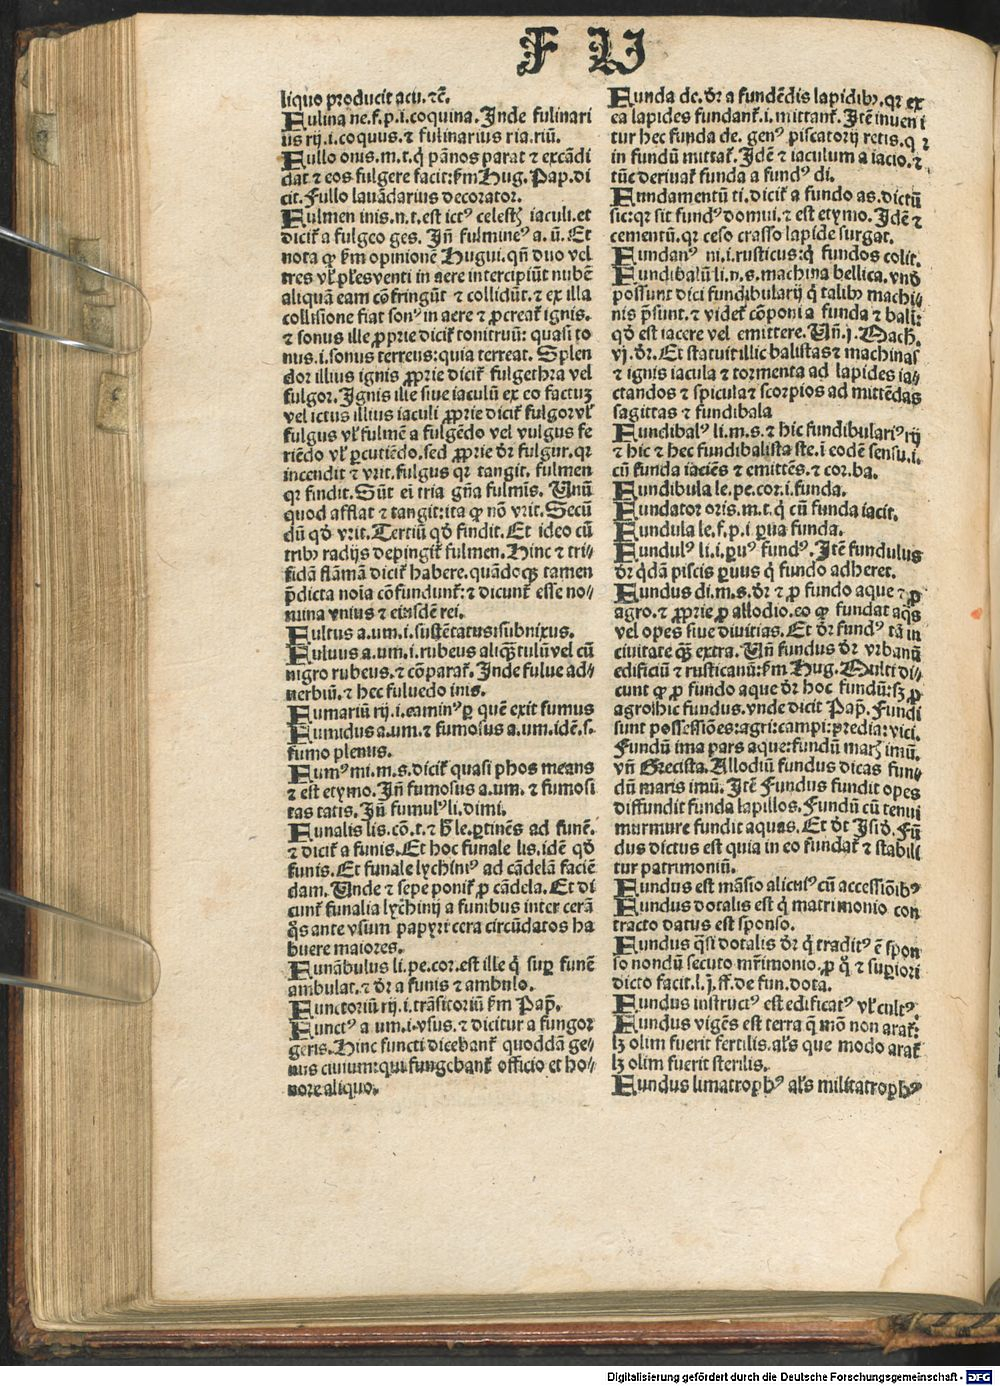 F U
liquo producit acu. ⁊c̄.
Fulina ne. f. p. i. coquina. Inde fulinari
us rij. i. coquus. ⁊ fulinarius ria. riū.
Fullo onis. m. t. q̇ pānos parat ⁊ excādi
dat ⁊ eos fulgere facit: ẜm Hug. Pap. di
cit. Fullo lauādarius decorator.
Fulmen inis. n. t. est ictꝰ celestꝭ iaculi. et
dicit᷑ a fulgeo ges. Jn̄ fulmineꝰ a. ū. Et
nota ꝙ ẜm opinionē Hugui. qn̄ duo vel
tres vl̓ pl̓es venti in aere intercipiūt nubē
aliquā eam cōfringūt ⁊ collidūt. ⁊ ex illa
collisione fiat sonꝰ in aere ⁊ ꝓcreat᷑ ignis.
⁊ sonus ille ꝓprie dicit᷑ tonitruū: quasi to
nus. i. sonus terreus: quia terreat. Splen
dor illius ignis ꝓprie dicit᷑ fulgethra vel
fulgor. Ignis ille siue iaculū ex eo factuꝫ
vel ictus illius iaculi ꝓprie dicit᷑ fulgor vl̓
fulgus vl̓ fulmē a fulgēdo vel vulgus fe
riēdo vl̓ ꝑcutiēdo. sed ꝓprie dr̄ fulgur. qr
incendit ⁊ vrit. fulgus qr tangit. fulmen
qr findit. Sūt ei̅ tria gn̄a fulmīs. Unū
quod afflat ⁊ tangit: ita ꝙ nō vrit. Secū
dū qđ vrit. Tertiū qđ findit. Et ideo cū
tribꝫ radijs depingit᷑ fulmen. Hinc ⁊ tri⸗
fidā flāmā dicit᷑ habere. quādoqꝫ tamen
p̄dicta noi̅a cōfundunt᷑: ⁊ dicunt᷑ esse no⸗
mina vnius ⁊ eiusdē rei.
Fultus a. um. i. sustētatus: subnixus.
Fuluus a. um. i. rubeus aliqꝫtulū vel cū
nigro rubeus. ⁊ cōparat᷑. Inde fulue ad⸗
uerbiū. ⁊ hec fuluedo inis.
Fumariū rij. i. caminꝰ ꝑ quē exit fumus
Fumidus a. um. ⁊ fumosus a. um. idē. s.
fumo plenus.
Fumꝰ mi. m. s. dicit᷑ quasi phos means
⁊ est etymo. Jn̄ fumosus a. um. ⁊ fumosi
tas tatis. Jn̄ fumulꝰ li. dimi.
Funalis lis. cō. t. ⁊ h̓ le. ꝑtinēs ad funē.
⁊ dicit᷑ a funis. Et hoc funale lis. idē qđ
funis. Et funale lychiniꝰ ad cādelā faciē
dam. Unde ⁊ sepe ponit᷑ ꝓ cādela. Et di
cunt᷑ funalia lychinij a funibus inter cerā
q̄s ante vsum papyri cera circūdatos ha
buere maiores.
Funābulus li. pe. cor. est ille q̇ suꝑ funē
ambulat. ⁊ dr̄ a funis ⁊ ambulo.
Functoriū rij. i. trāsitoriū ẜm Pap̄.
Functꝰ a um. i. vsus. ⁊ dicitur a fungor
geris. Hinc functi dicebant᷑ quoddā ge⸗
nus ciuium: qui fungebant᷑ officio et ho⸗
nore aliquo.
Funda de. dr̄ a fundēdis lapidibꝫ. qr ex
ea lapides fundant᷑. i. mittant᷑. Itē inueni
tur hec funda de. genꝰ piscatorij retis. q r
in fundū mittat᷑. Idē ⁊ iaculum a iacio. ⁊
tūc deriuat᷑ funda a fundꝰ di.
Fundamentū ti. dicit᷑ a fundo as. dictū
sic: qr sit fundꝰ domui. ⁊ est etymo. Idē ⁊
cementū. qr ceso crasso lapide surgat.
Fundanꝰ ni. i. rusticus: q̇ fundos colit.
Fundibalū li. n. s. machina bellica. vnđ
possunt dici fundibularij q̇ talibꝫ machi⸗
nis p̄sunt. ⁊ videt᷑ cōponi a funda ⁊ bali:
qđ est iacere vel emittere. Un̄. j. Mach.
vj. dr̄. Et statuit illic balistas ⁊ machinas
⁊ ignis iacula ⁊ tormenta ad lapides ia⸗
ctandos ⁊ spicula ⁊ scorpios ad mittēdas
sagittas ⁊ fundibala
Fundibalꝰ li. m. s. ⁊ hic fundibulariꝰ rij
⁊ hic ⁊ hec fundibalista ste. i̅ eodē sensu. i.
cū funda iaciēs ⁊ emittēs. ⁊ cor. ba.
Fundibula le. pe. cor. i. funda.
Fundator oris. m. t. q̇ cū funda iacit.
Fundula le. f. p. i ꝑua funda.
Fundulꝰ li. i. ꝑuꝰ fundꝰ. Itē fundulus
dr̄ qdā piscis ꝑuus q̇ fundo adheret.
Fundus di. m. s. dr̄ ⁊ ꝓ fundo aque ⁊ ꝓ
agro. ⁊ ꝓprie ꝓ allodio. eo ꝙ fundat aq̄s
vel opes siue diuitias. Et dr̄ fundꝰ tā in
ciuitate qꝫ extra. Un̄ fundus dr̄ vrbanū
edificiū ⁊ rusticanū: ẜm Hug. Multi di⸗
cunt ꝙ ꝓ fundo aque dr̄ hoc fundū: sꝫ ꝓ
agro hic fundus. vnde dicit Pap̄. Fundi
sunt possessiōes: agri: campi: predia: vici.
Fundū ima pars aque: fundū marꝭ imū.
vn̄ Grecista. Allodiū fundus dicas fun⸗
dū maris imū. Itē Fundus fundit opes
diffundit funda lapillos. Fundū cū tenui
murmure fundit aquas. Et dc̄t Isid̄. Fū
dus dictus est quia in eo fundat᷑ ⁊ stabili
tur patrimoniū.
Fundus est māsio alicuiꝰ cū accessiōibꝰ
Fundus dotalis est q̇ matrimonio con
tracto datus est sponso.
Fundus q̄si dotalis dr̄ q̇ traditꝰ ē spon
so nondū secuto mr̄imonio. ꝓ q̇ ⁊ suꝑiori
dicto facit. l. j. ff. de fun. dota.
Fundus instructꝰ est edificatꝰ vl̓ cultꝰ.
Fundus vigēs est terra q̄ mō non arat᷑.
lꝫ olim fuerit fertilis. al̓s que modo arat᷑
lꝫ olim fuerit sterilis.
Fundus limatrophꝰ al̓s militatrophꝰ
Digitalisierung gefördert durch die Deutsche Forschungsgemeinschaft - DFG